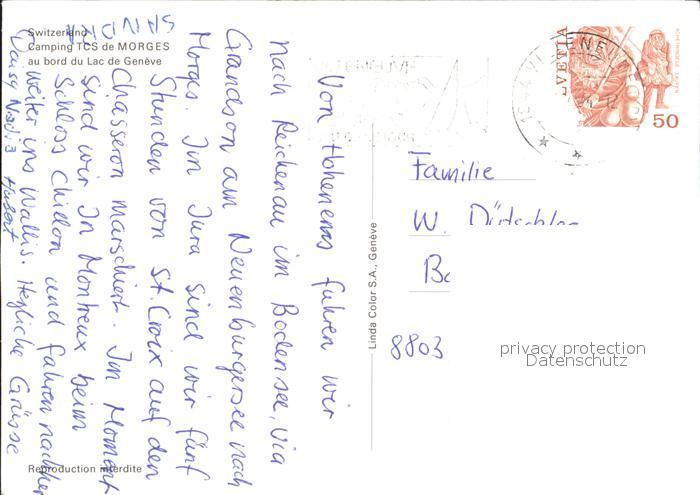 Switzerland
Camping TCS de MORGES
au bord du Lac de Genève
Von Hohenems fuhren wir
nach Reichenau im Bodensee, via
Grandson am Neuenburgersee nach
Morges. Im Jura sind wir fünf
Stunden von St. Croix auf den
Chasseron marschiert. Im Moment
sind wir in Montreux beim
Schloss Chillon und fahren nachher
weiter ins Wallis. Herzliche Grüsse
Daisy Nadia Hubert
Reproduction interdite
Linda Color S.A., Genève
HELVETIA
50
Familie
W.
8803
privacy protection
Datenschutz